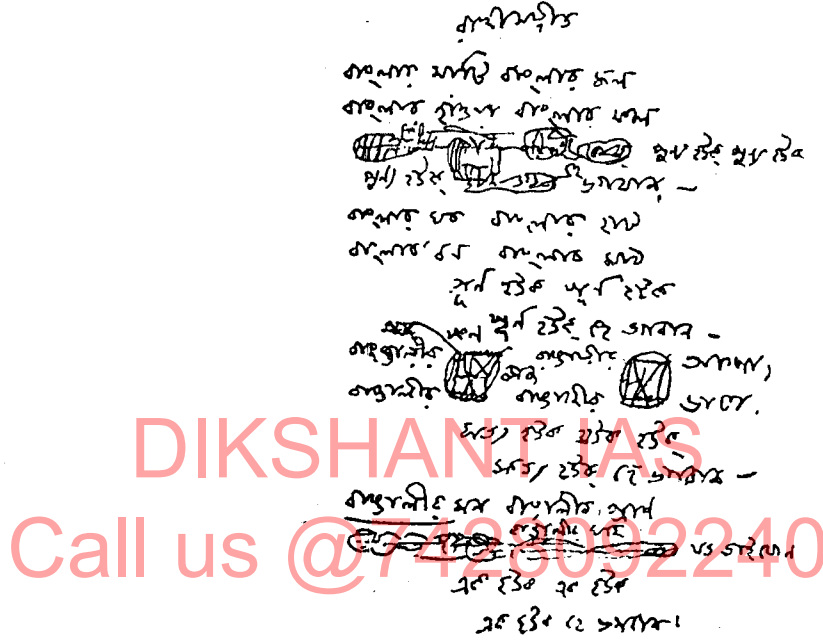 রাখীসঙ্গীত
বাংলার মাটি বাংলার জল
বাংলার হাওয়া বাংলার ফল
পুণ্য হউক পুণ্য হউক
পুণ্য হউক হে ভগবান —
বাংলার ঘর বাংলার হাট
বাংলার বন বাংলার মাঠ
পূর্ণ হউক পূর্ণ হউক
পূর্ণ হউক হে ভগবান —
বাঙালীর বাঙালীর আশা,
বাঙালীর কাজ বাঙালীর ভাষা,
সত্য হউক সত্য হউক
সত্য হউক হে ভগবান —
বাঙালীর মন বাঙালীর প্রাণ
বাঙালীর ঘরে যত ভাইবোন
এক হউক এক হউক
এক হউক হে ভগবান।
DIKSHANT IAS
Call us @7428092240